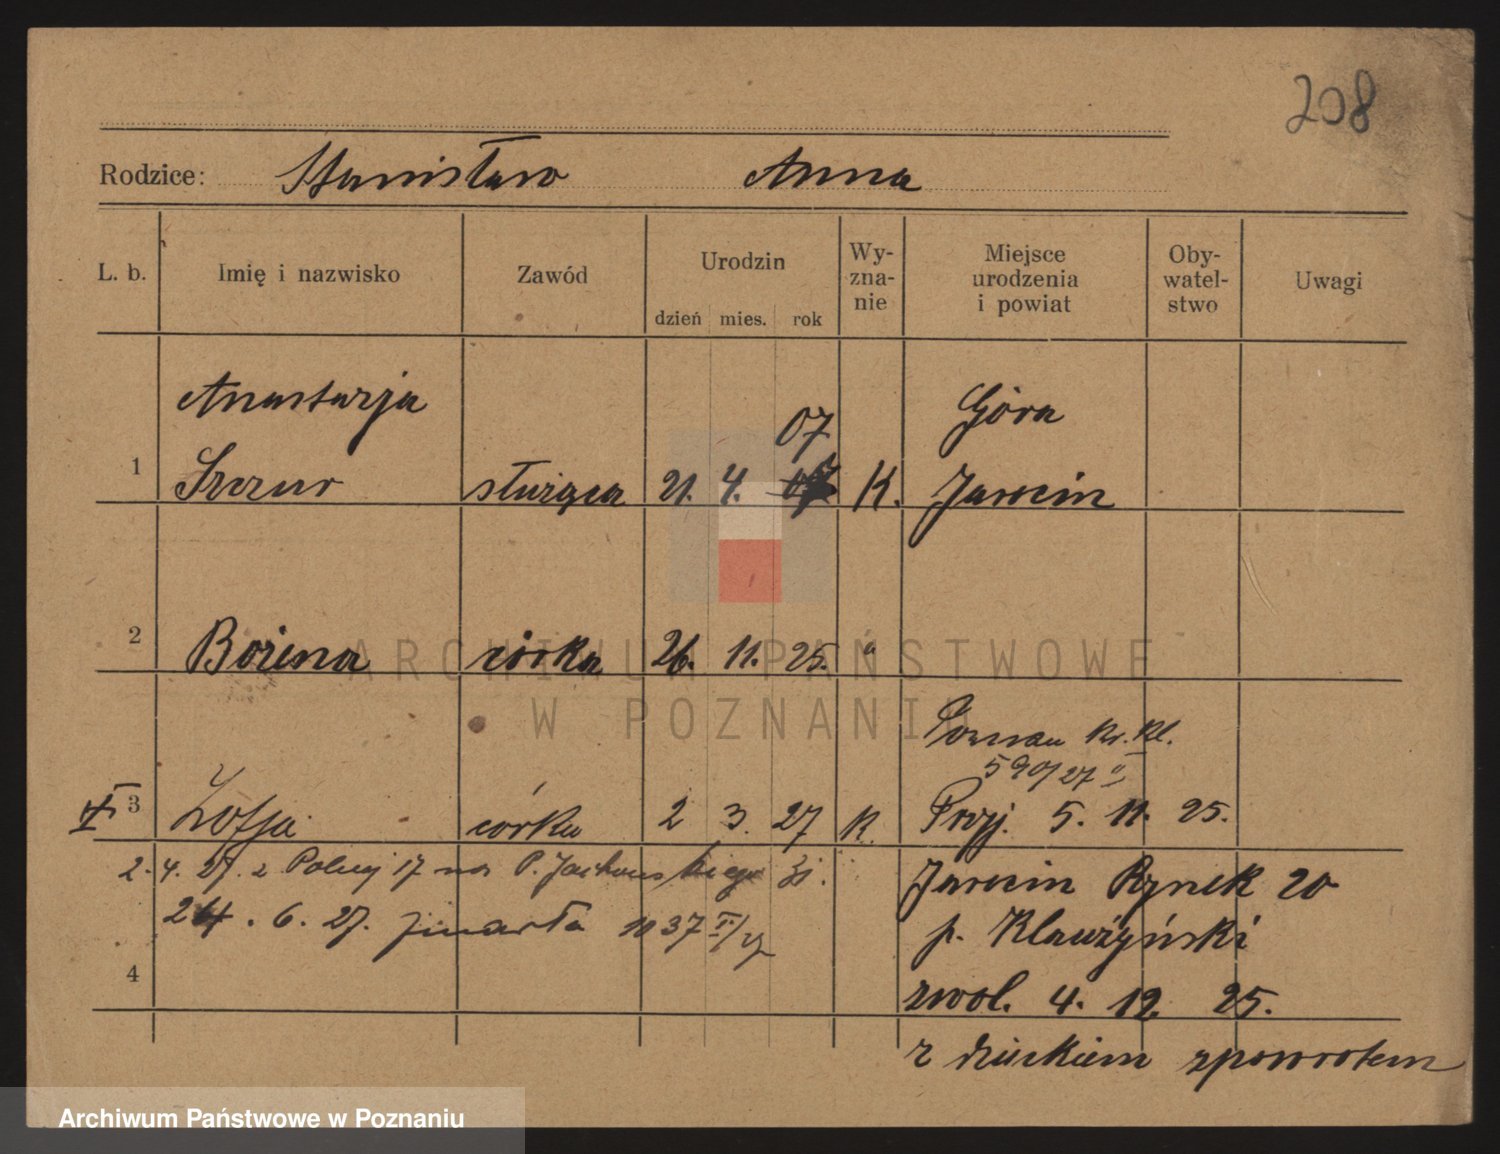 208
Rodzice: Stanisław Anna
L. b. Imię i nazwisko Zawód Urodzin dzień mies. rok Wy-zna-nie Miejsce urodzenia i powiat Oby-watel-stwo Uwagi
Anastazja Góra
07
1 Szczur służąca 21. 4. K. Jarocin
2 Bożena córka 26. 11. 25. "
ARCHIWUM PAŃSTWOWE
W POZNANIU
Poznań Kr. Kl.
590/27
3 Zofja córka 2 3. 27 K. Przyj. 5. 11. 25.
2. 4. 27. z Polnej 17 na P. Jackowskiego 31. Jarocin Rynek 20
24. 6. 27. zmarła 1037 p. Klauzyński
4 zwol. 4. 12. 25.
z dzieckiem zpowrotem
Archiwum Państwowe w Poznaniu